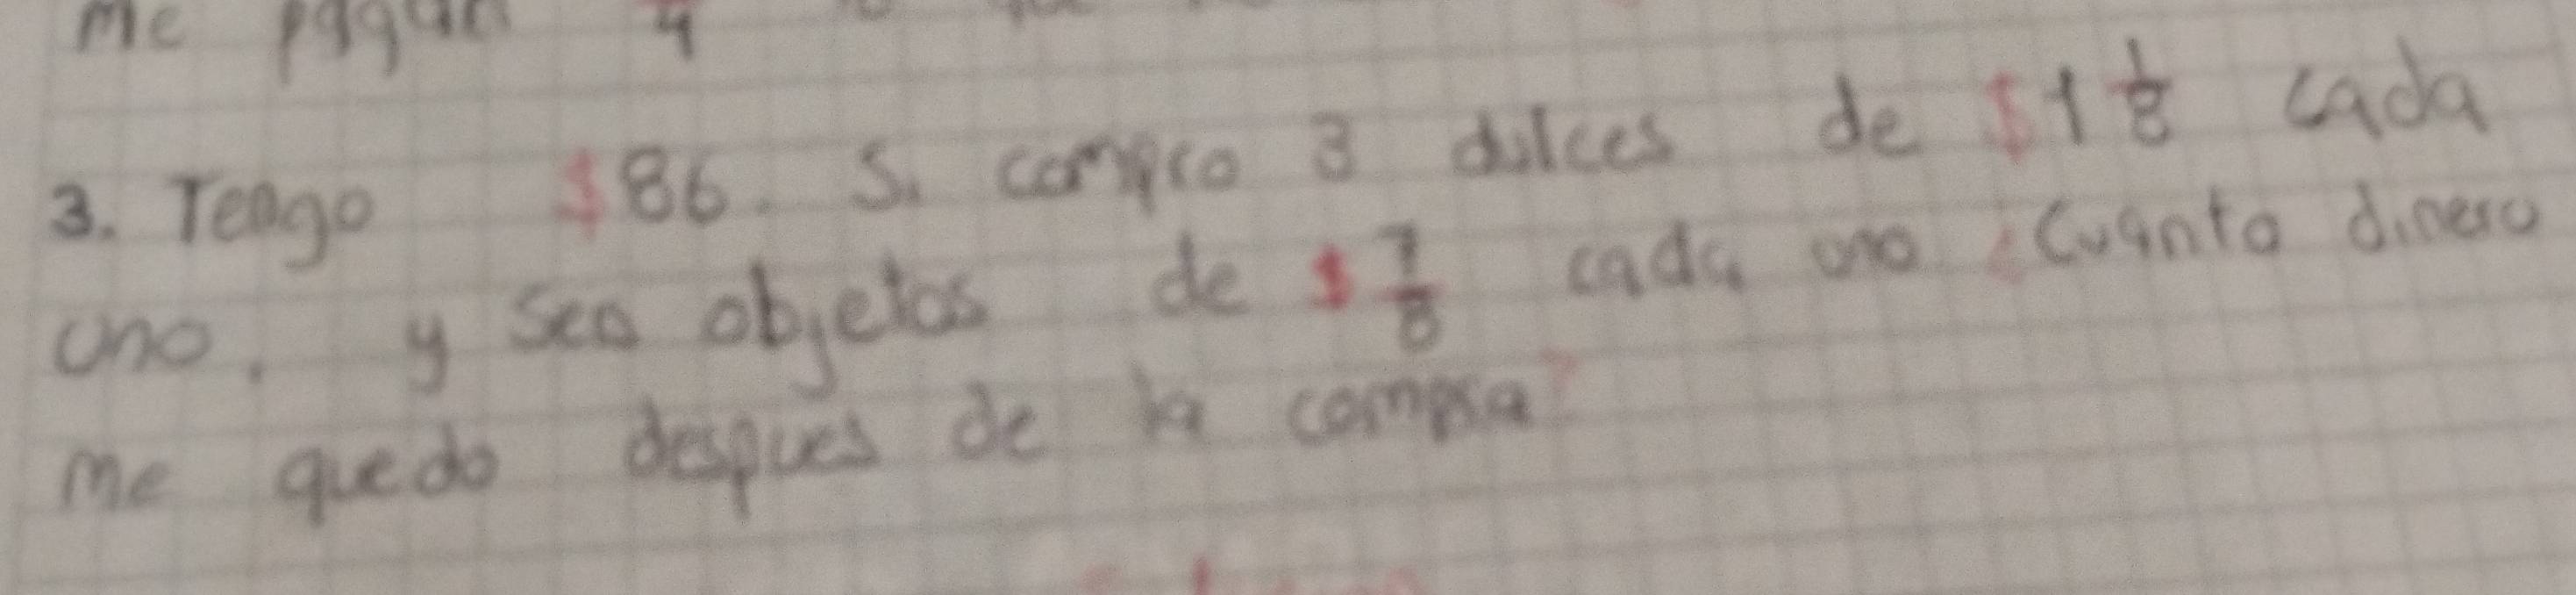 me pagan 4
3. Tengo $86. Si compro 3 dulces de $1 1/8 cada
uno, y seo objetos de $ 7/8 cada uno ¿Cuanto dinero
me quedo despues de la compra?